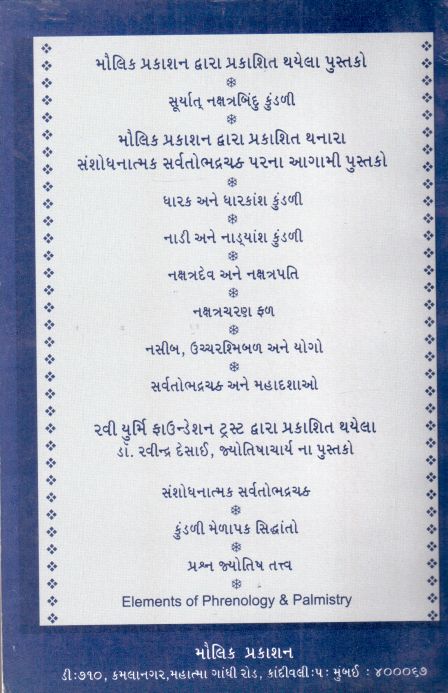 મૌલિક પ્રકાશન દ્વારા પ્રકાશિત થયેલા પુસ્તકો
સૂર્યાત્ નક્ષત્રબિંદુ કુંડળી
મૌલિક પ્રકાશન દ્વારા પ્રકાશિત થનારા
સંશોધનાત્મક સર્વતોભદ્રચક્ર પરના આગામી પુસ્તકો
ધારક અને ધારકાંશ કુંડળી
નાડી અને નાડ્યાંશ કુંડળી
નક્ષત્રદેવ અને નક્ષત્રપતિ
નક્ષત્રચરણ ફળ
નસીબ, ઉચ્ચરશ્મિબળ અને યોગો
સર્વતોભદ્રચક્ર અને મહાદશાઓ
રવી યુર્મિ ફાઉન્ડેશન ટ્રસ્ટ દ્વારા પ્રકાશિત થયેલા
ડૉ. રવીન્દ્ર દેસાઈ, જ્યોતિષાચાર્ય ના પુસ્તકો
સંશોધનાત્મક સર્વતોભદ્રચક્ર
કુંડળી મેળાપક સિદ્ધાંતો
પ્રશ્ન જ્યોતિષ તત્ત્વ
Elements of Phrenology & Palmistry
મૌલિક પ્રકાશન
ડી:૭૧૦, કમલાનગર,મહાત્મા ગાંધી રોડ, કાંદીવલી:૫: મુંબઈ : ૪૦૦૦૬૭